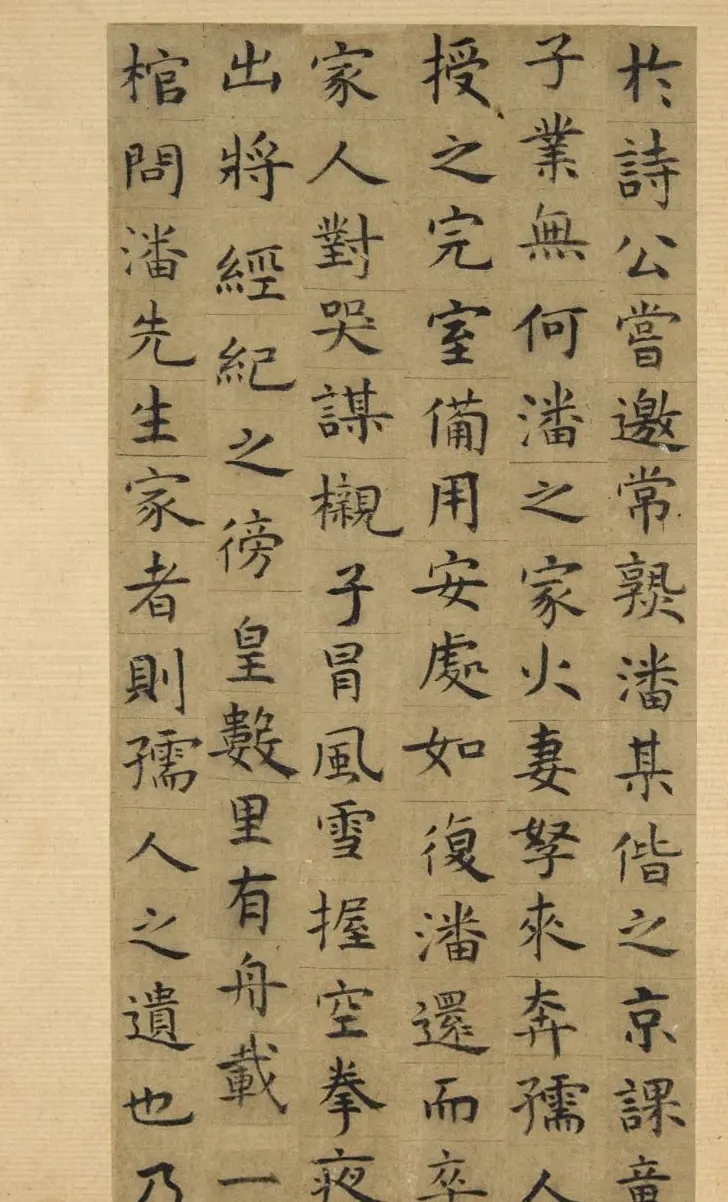 於詩公嘗邀常熟潘某偕之京課童
子業無何潘之家火妻孥來奔孺人
授之完室備用安處如復潘還而卒
家人對哭謀櫬子冒風雪握空拳夜
出將經紀之傍皇數里有舟載一
棺問潘先生家者則孺人之遺也乃